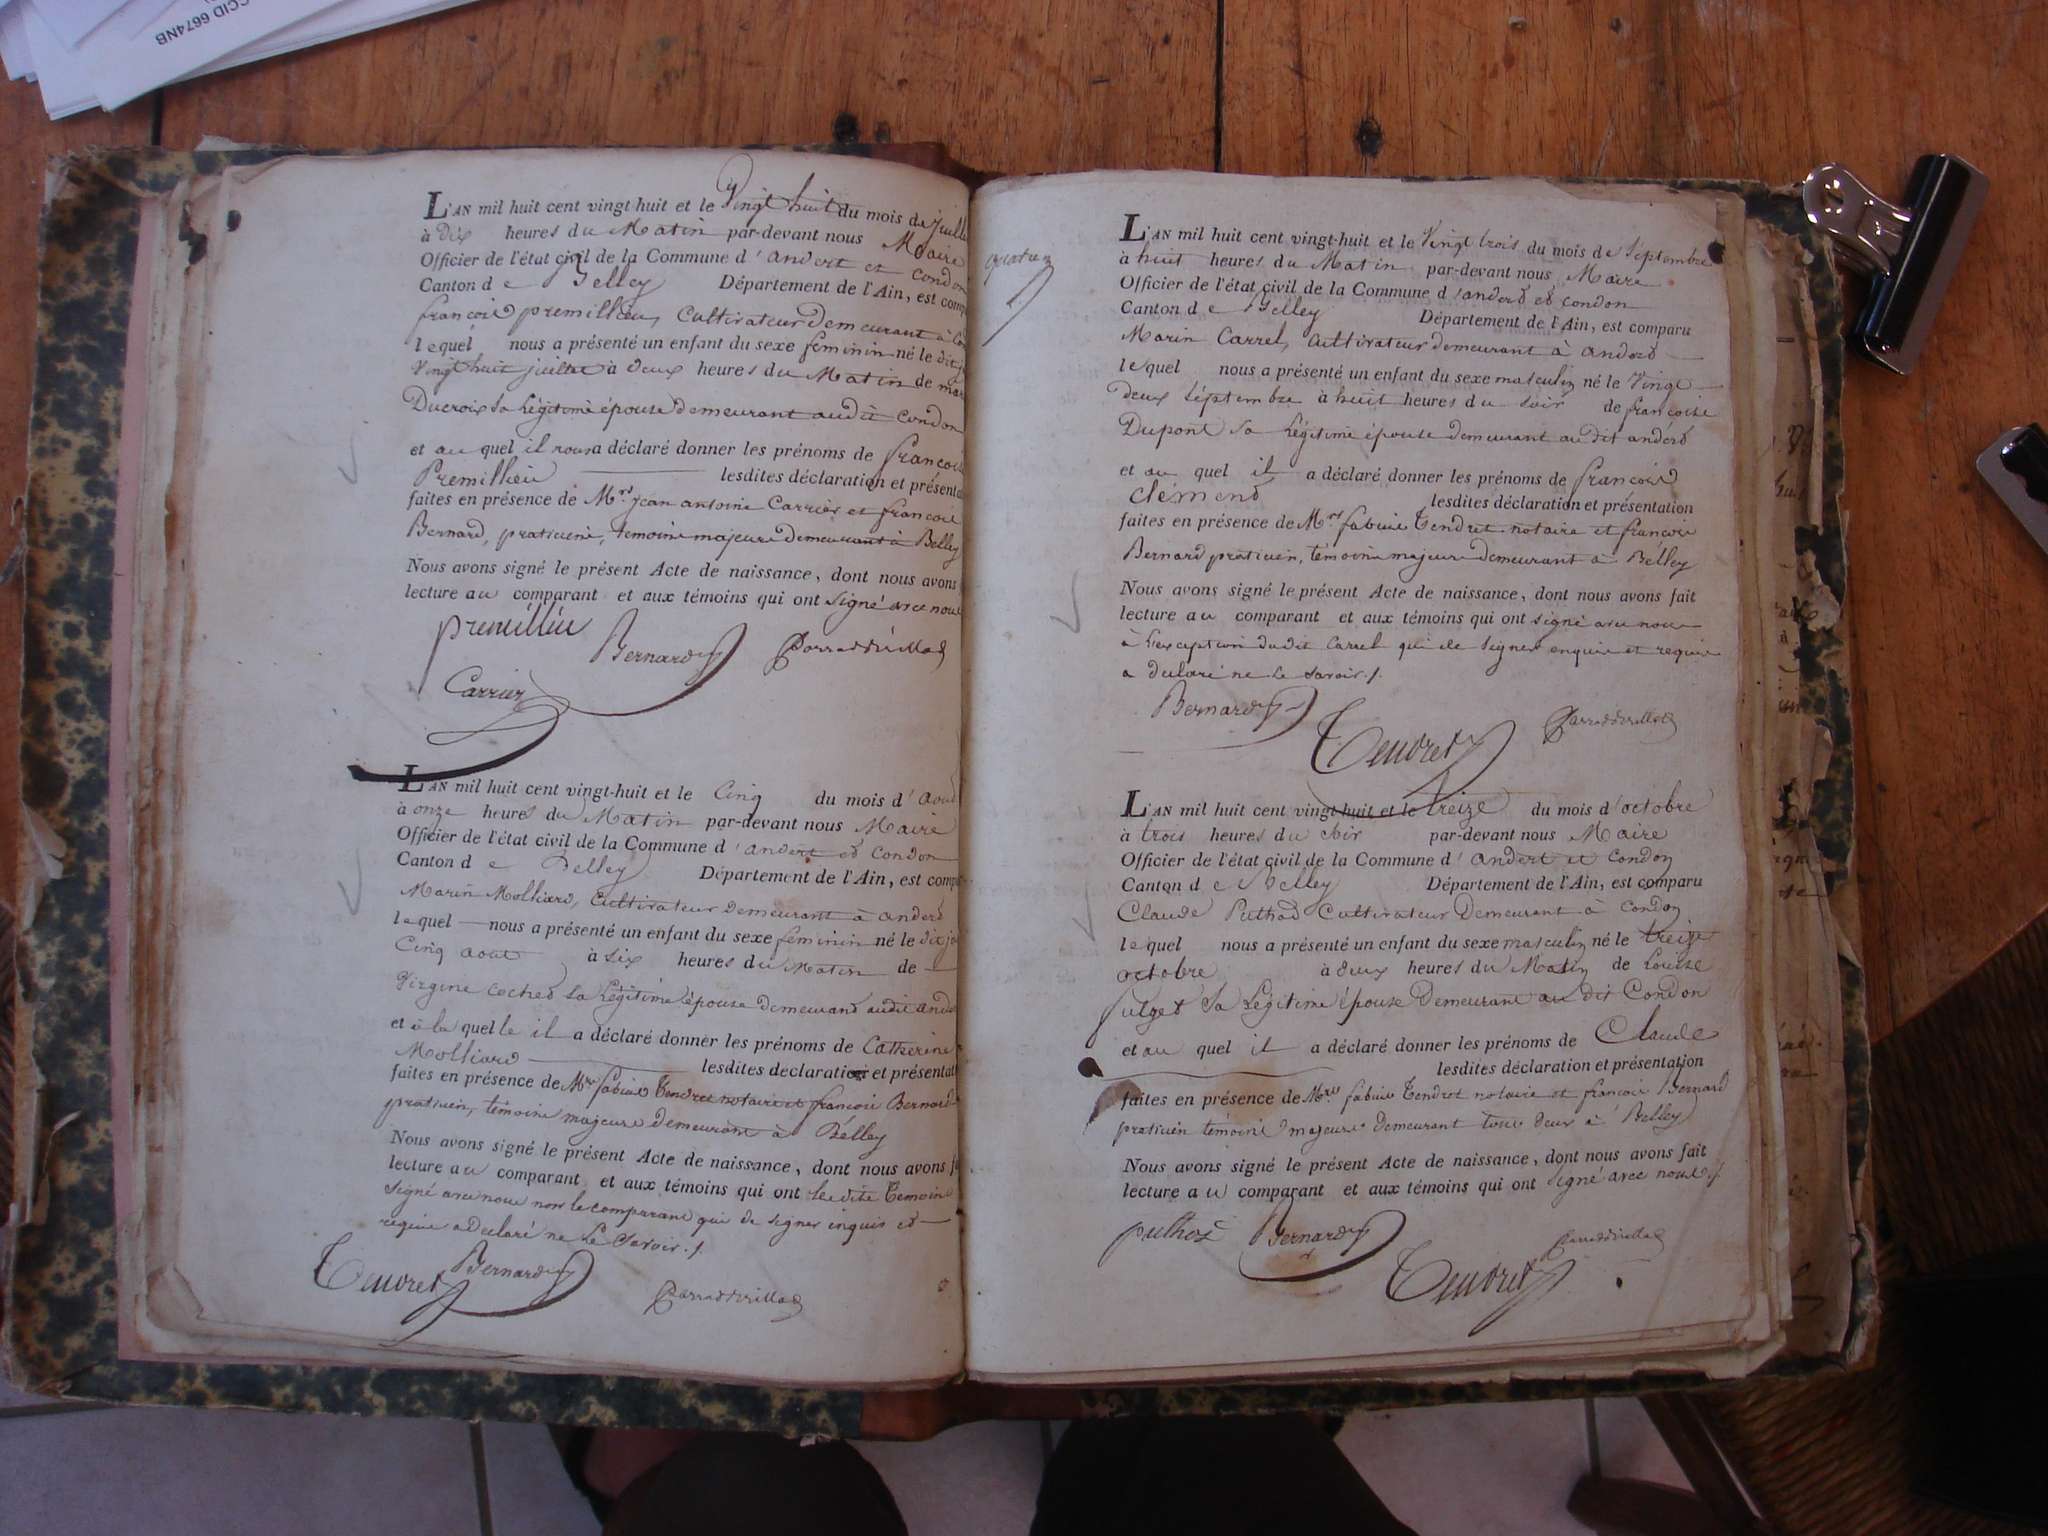 CCID 6674NB
L'AN mil huit cent vingt huit et le Vingt huit du mois de juillet
à Dix heures du Matin par-devant nous Maire
Officier de l'état civil de la Commune d'andert et condon
Canton de Belley Département de l'Ain, est comp
françois premillieu, Cultivateur demeurant à Con
lequel nous a présenté un enfant du sexe feminin né le dit j
Vingt huit juillet à Deux heures du Matin de mar
Ducroix sa Légitime épouse demeurant audit condon
et au quel il nous a déclaré donner les prénoms de françoise
Premillieu lesdites déclaration et présenta
faites en présence de Mrs jean antoine Carrier et françois
Bernard, praticiens, temoins majeurs demeurant à Belley
Nous avons signé le présent Acte de naissance, dont nous avons
lecture au comparant et aux témoins qui ont signé avec nous
premillieu
Bernard
Carrier
L'AN mil huit cent vingt-huit et le Cinq du mois d'Aout
à onze heures du Matin par-devant nous Maire
Officier de l'état civil de la Commune d'andert et condon
Canton de Belley Département de l'Ain, est comp
Marin Molliard, Cultivateur demeurant à andert
lequel nous a présenté un enfant du sexe feminin né le dit jo
Cinq aout à six heures du Matin de
Virgine cochet sa Légitime épouse demeurant audit ander
et à la quelle il a déclaré donner les prénoms de Catherine
Molliard lesdites déclaration et présentat
faites en présence de Mrs fabius Tendret notaire et françois Bernard
praticien, témoins majeurs demeurant à Belley
Nous avons signé le présent Acte de naissance, dont nous avons f
lecture au comparant et aux témoins qui ont lesdits temoins
signé avec nous non le comparant qui de signer inquis et
requis a déclaré ne le savoir ./.
Tendret
Bernard
quatre
L'AN mil huit cent vingt-huit et le Vingt trois du mois de Septembre
à huit heures du Matin par-devant nous Maire
Officier de l'état civil de la Commune d'andert et condon
Canton de Belley Département de l'Ain, est comparu
Marin Carrel, Cultivateur demeurant à andert
lequel nous a présenté un enfant du sexe masculin né le Vingt
deux septembre à huit heures du soir de françoise
Dupont sa Légitime épouse demeurant au dit andert
et au quel il a déclaré donner les prénoms de françois
clément lesdites déclaration et présentation
faites en présence de Mrs fabius Tendret notaire et françois
Bernard praticien, témoins majeurs demeurant à Belley
Nous avons signé le présent Acte de naissance, dont nous avons fait
lecture au comparant et aux témoins qui ont signé avec nous
à l'exception dudit Carrel qui de signer enquis et requis
a déclaré ne le savoir ./.
Bernard
Tendret
L'AN mil huit cent vingt-huit et le treize du mois d'octobre
à trois heures du soir par-devant nous Maire
Officier de l'état civil de la Commune d'andert et condon
Canton de Belley Département de l'Ain, est comparu
Claude Puthod Cultivateur Demeurant à Condon
lequel nous a présenté un enfant du sexe masculin né le treize
octobre à deux heures du Matin de Louise
fulget sa Légitime épouse Demeurant au dit Condon
et au quel il a déclaré donner les prénoms de Claude
lesdites déclaration et présentation
faites en présence de Mrs fabius Tendret notaire et françois Bernard
praticien témoins majeurs demeurant tous deux à Belley
Nous avons signé le présent Acte de naissance, dont nous avons fait
lecture au comparant et aux témoins qui ont signé avec nous ./.
puthod
Bernard
Tendret